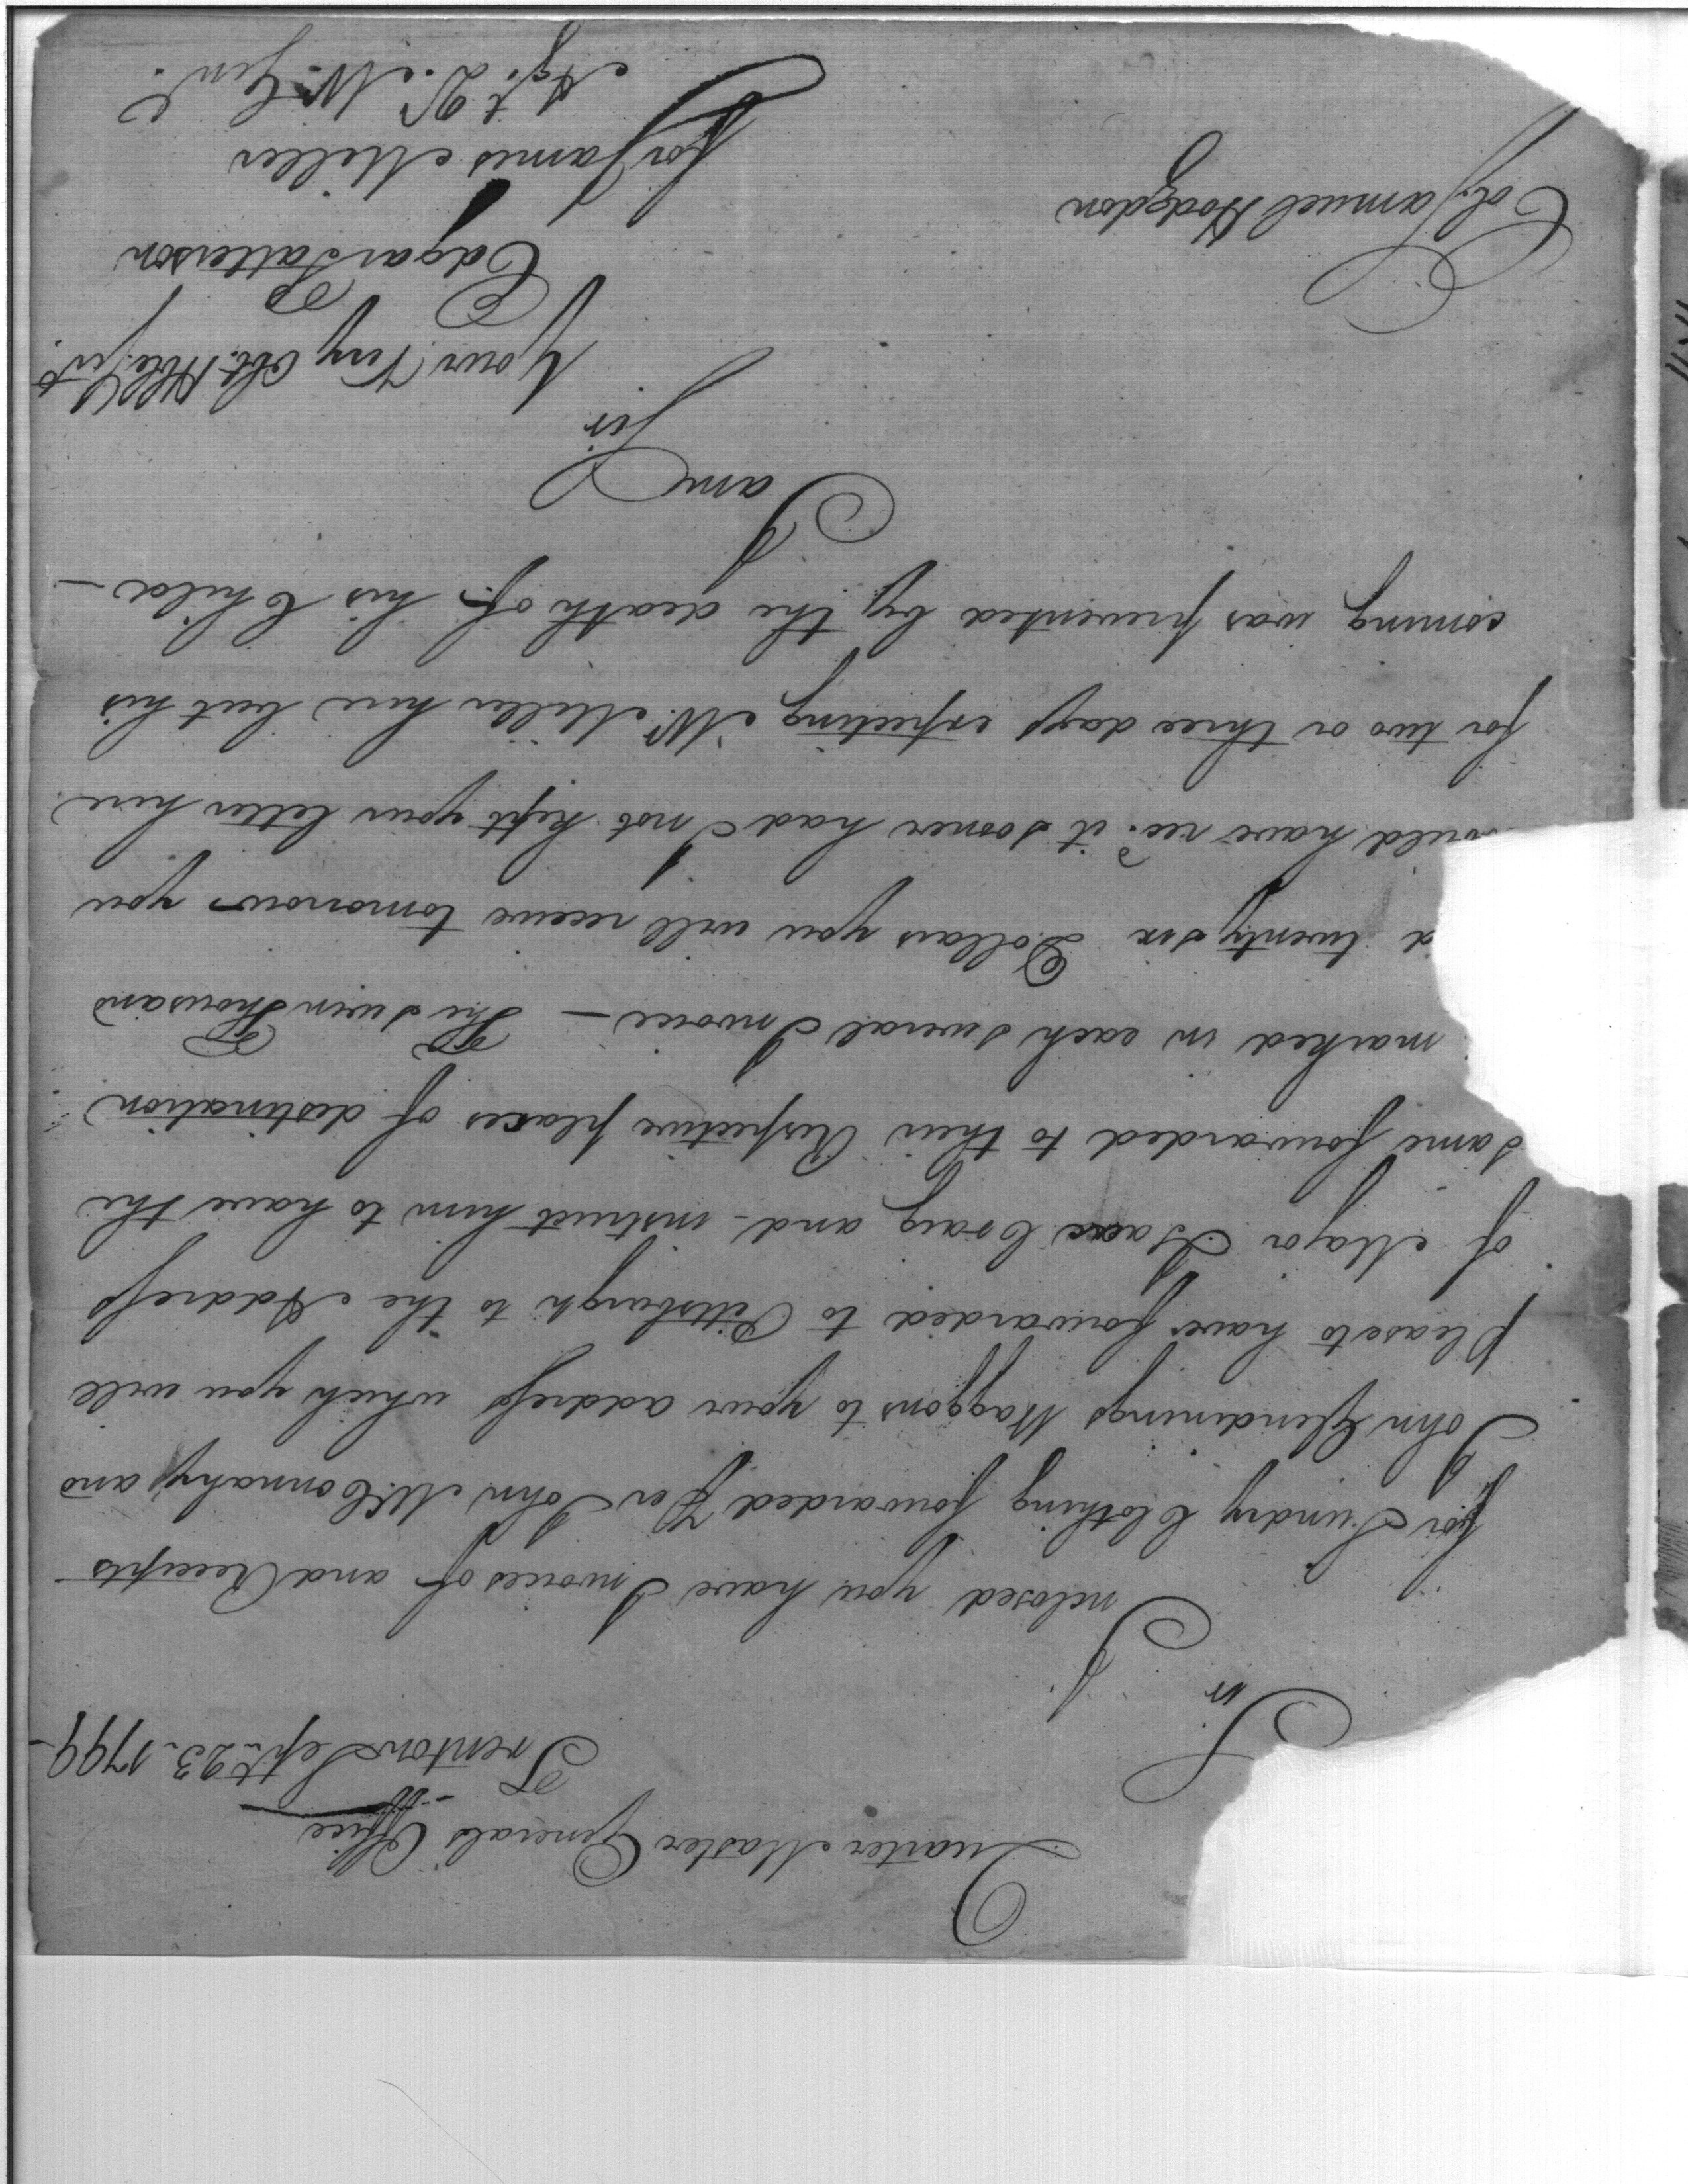 Quarter Master General's Office
Trenton Sept. 23. 1799 –
Sir
Inclosed you have Invoices of and Receipts
for Sundry Clothing forwarded Per John McConnahy and
John Glendinings Waggons to your address which you will
please to have forwarded to Pittsburgh to the Address
of Major Isaac Craig and instruct him to have the
same forwarded to their Respective places of destination
marked in each several Invoice – The seven Thousand
d twenty six Dollars you will receive tomorrow you
would have recd. it sooner had I not kept your letter here
for two or three days expecting Mr. Miller here but his
coming was prevented by the death of his Child –
I am
Sir
Your Very Obt. Hble Servt.
Edgar Patterson
for James Miller
Agt. Q. M. Genl.
Col. Samuel Hodgdon